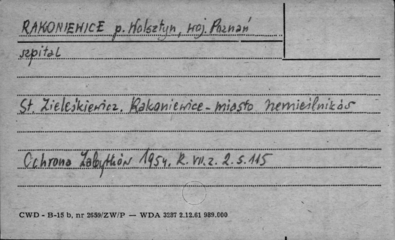 RAKONIEWICE p. Wolsztyn, woj. Poznań
szpital
St. Zieleśkiewicz. Rakoniewice - miasto rzemieślników
Ochrona Zabytków 1954. R. VII. z. 2. s. 115
CWD - B-15 b, nr 2659/ZW/P — WDA 3237 2.12.61 989.000